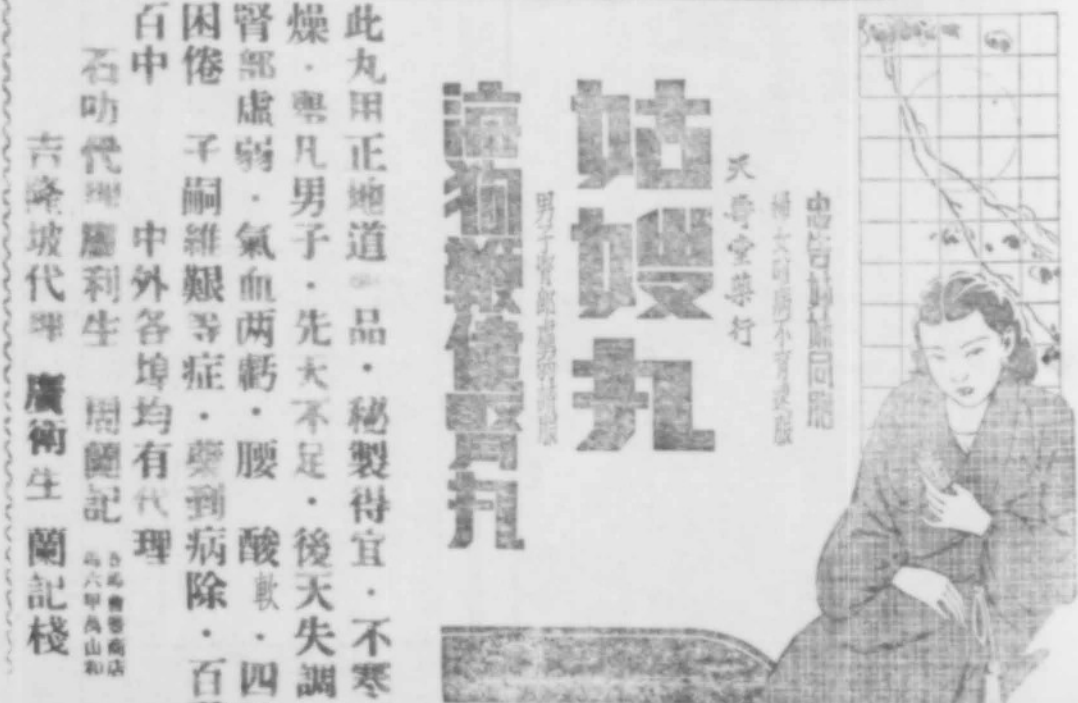 忠告姉妹同胞
天壽堂藥行
姑嫂丸
男子腎部虛弱請服
海狗鞭健腎丸
此丸用正地道 品．秘製得宜．不寒
燥．舉凡男子．先天不足．後天失調
腎部虛弱．氣血両虧．腰 酸軟．四
困倦 子嗣維艱等症．藥到病除．百
百中 中外各埠均有代理
石叻代理 廣利生 周蘭記
馬六甲萬山和
吉隆坡代理 廣衛生 蘭記棧